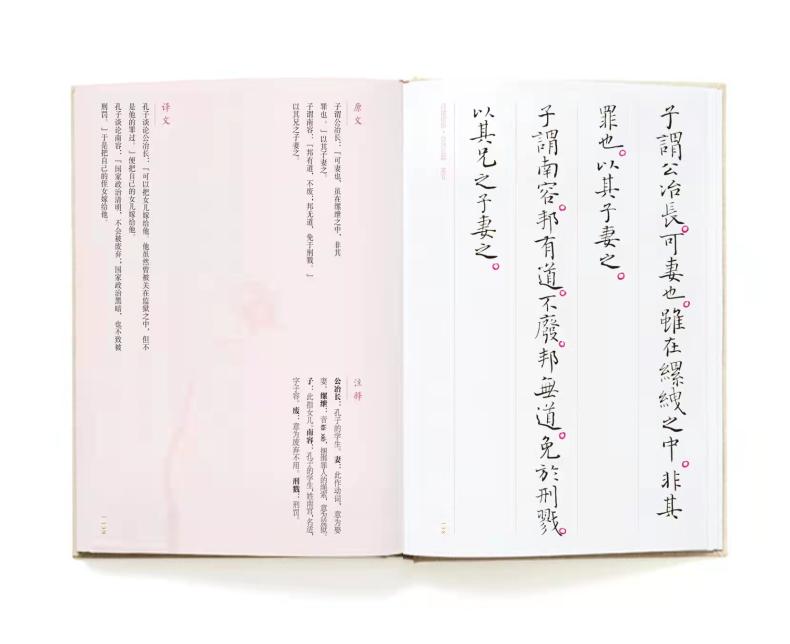 子謂公冶長。可妻也。雖在縲絏之中。非其
罪也。以其子妻之。
子謂南容。邦有道。不廢。邦無道。免於刑戮。
以其兄之子妻之。
138
原文
子谓公冶长：「可妻也，虽在缧绁之中，非其
罪也。」以其子妻之。
子谓南容：「邦有道，不废；邦无道，免于刑戮。」
以其兄之子妻之。
注释
公冶长：孔子的学生。妻：此作动词，意为娶
妻。缧绁：音 léi xiè，捆绑罪人的绳索，意为监狱。
子：此指女儿。南容：孔子的学生，姓南宫，名适，
字子容。废：意为废弃不用。刑戮：刑罚。
译文
孔子谈论公冶长：「可以把女儿嫁给他，他虽然曾被关在监狱之中，但不
是他的罪过。」便把自己的女儿嫁给他。
孔子谈论南容：「国家政治清明，不会被废弃；国家政治黑暗，也不致被
刑罚。」于是把自己的侄女嫁给他。
139